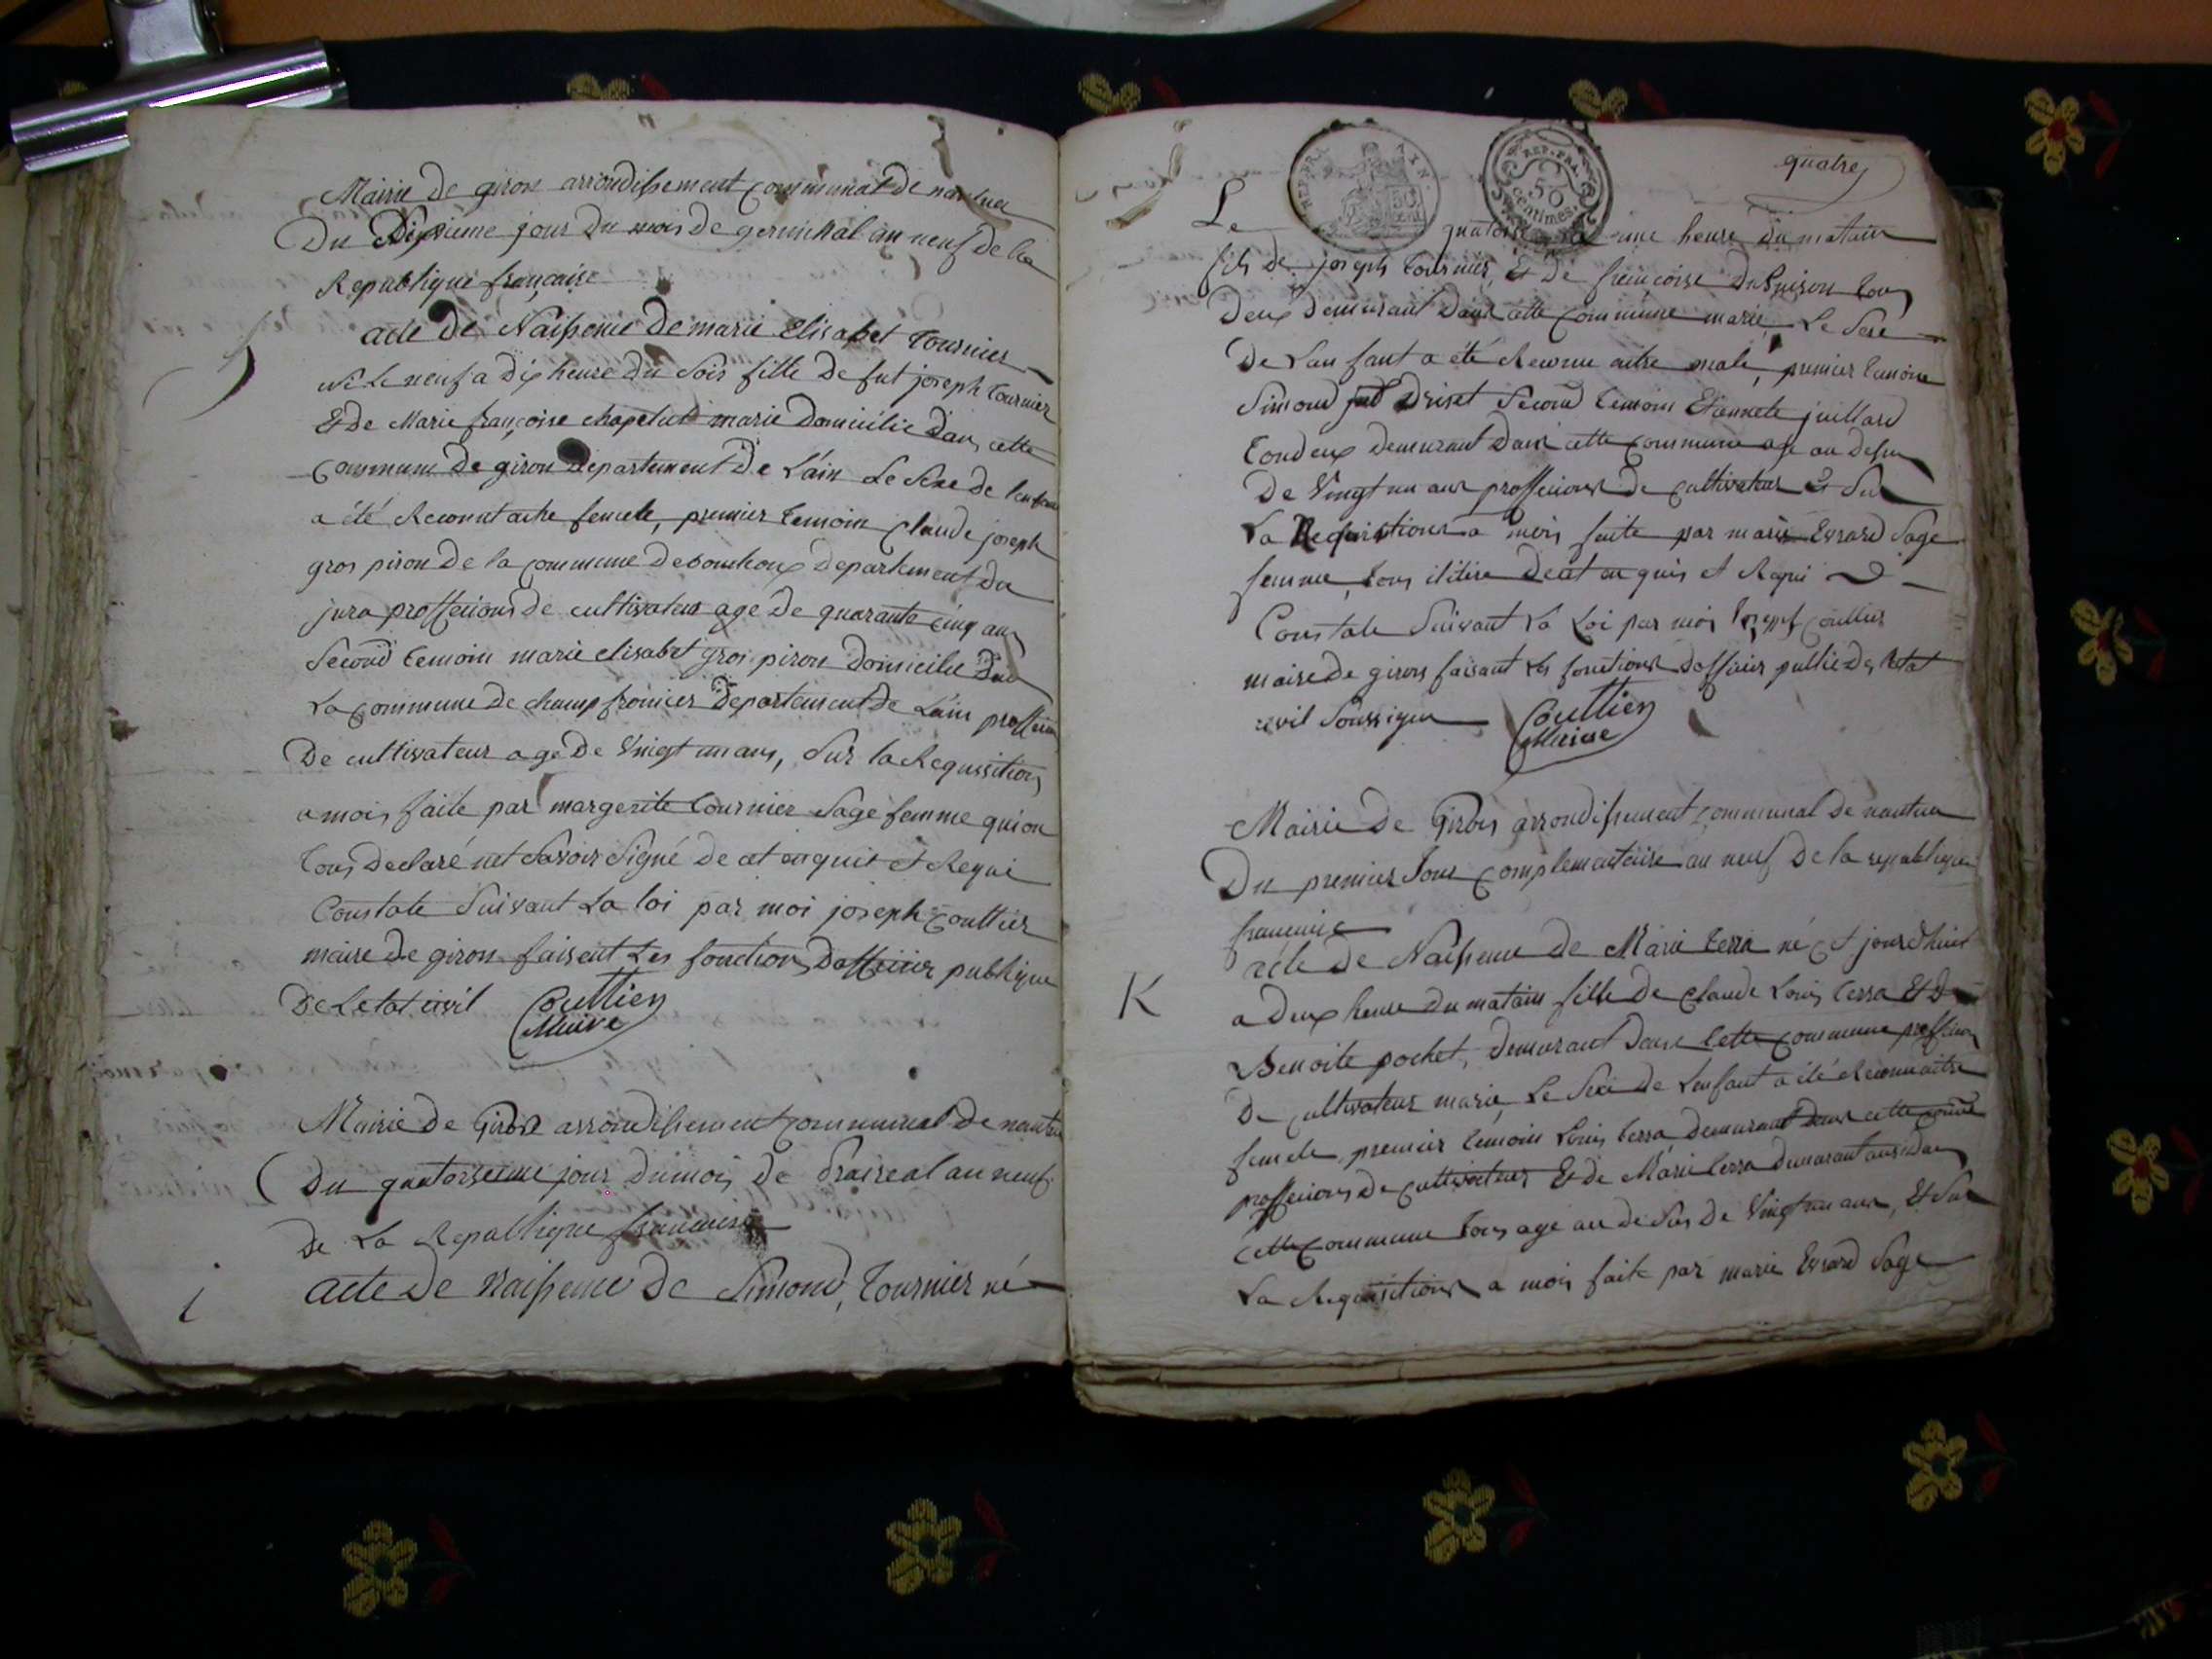 Mairie de giron arrondissement communal de nantua
Du Dixieme jour Du mois de germinal an neuf de la
Republique française
acte de Naissence de marie Elisabet Tournier
né Le neuf a dix heure du Soir fille de fut joseph Tournier
Et de Marie françoise chapelut marie Domicilié dans cette
Commune de giron Departement De L'ain Le Sexe de lenfant
a été Reconnut aitre femele, premier temoin Claude joseph
gros piron de la commune de bouchoux departement du
jura proffecions de cultivateur agé de quarante cinq ans
Second temoin marie elisabet gros piron domicilié dans
La commune de champfromier departement de L'ain proffecion
De cultivateur agé De Vingt un ans, Sur la Requisition
a mois faite par margerite tournier Sage femme qui on
Tous declaré net Savoir Signé de cet enquit et Requi
Constaté Suivant La loi par moi joseph Coultier
maire de giron faisent Les fonction Dofficier publique
De Letat civil Coultier
Maire
Mairie de Giron arrondissement communal de nantua
Du quatorseme jour du mois de Praireal an neuf
de La Republique francaise
i
acte de naissence de Simond, Tournier né
quatre
REP. FRA.
50
centimes.
Le quatorse a une heure du matain
fils de joseph tournier, Et de francoise du Puison tous
Deux demurant dans cette commune marié, Le Sexe
De Lan fant a été Reconu aitre male, premier temoin
Simond Driset Second temoin Etiennete juillard
Tou deux demurant dans cette commune age au desu
De Vingt un ans proffecions de cultivateur Et Sur
La Requisitions a mois faite par marie Evrard Sage
femme, tous de cet en quis et Requi
Constaté Suivant La Loi par moi Coultier
maire de giron faisant Les fonctions dofficier public de Letat
civil Soussigné Coultier
Maire
Mairie de Giron arrondissement communal de nantua
Du premier Jour complementaire an neuf de la republique
francaise
acte de Naissence de Marie terra né et jourdhuit
K
a deux heure du matain fille de Claude Louis terra Et de
Benoite pochet, demurant dans cette commune proffecion
De cultivateur marié, Le Sexe de Lenfant a été Reconnu aitre
femele, premier temoin Louis terra demurant dans cette comune
proffecions de cultivateur Et de Marie terra demurant ausi dans
cette commune tous age au de Sus de Vingt un ans, Et Sur
La Requisitions a mois faite par marie Evrard Sage